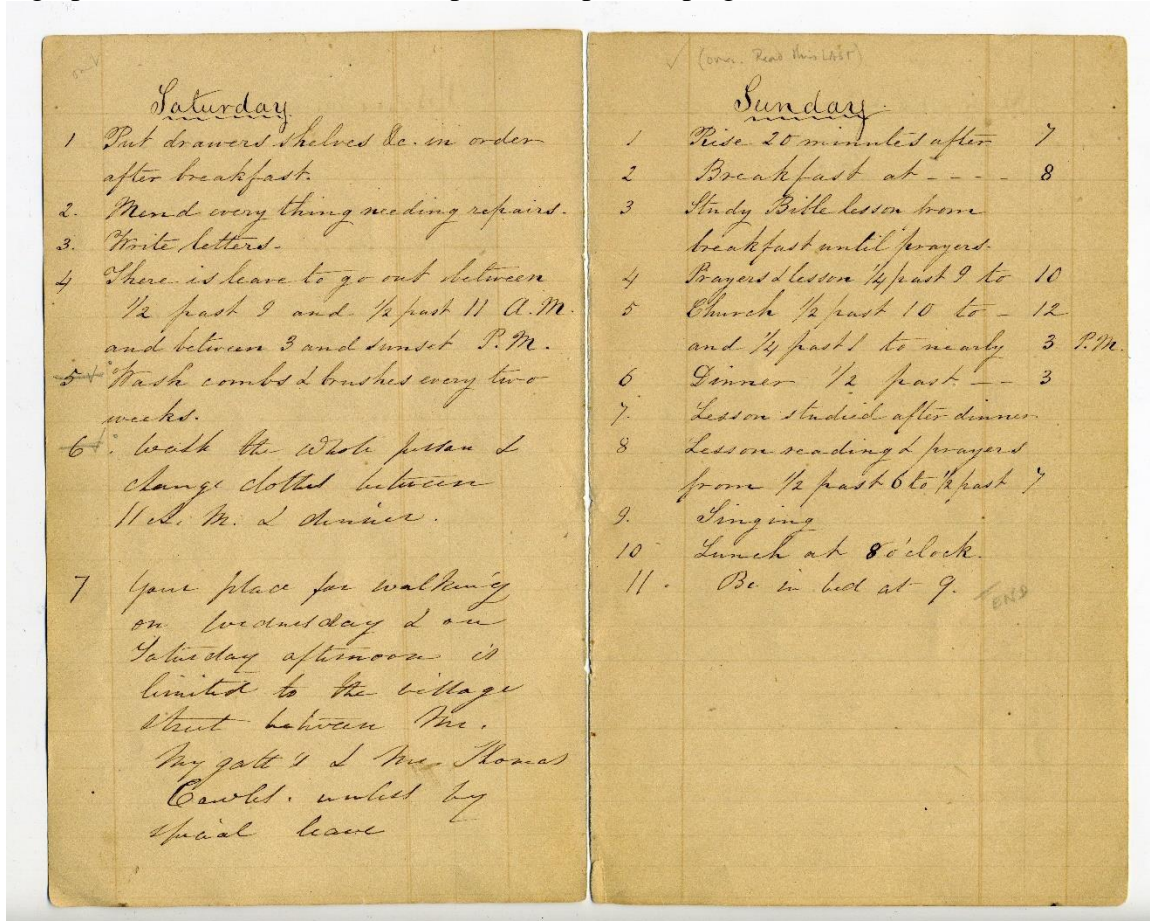 Saturday
1 Put drawers shelves &c. in order
after breakfast.
2. Mend every thing needing repairs.
3. Write letters.
4 There is leave to go out between
1/2 past 9 and 1/2 past 11 A.M.
and between 3 and sunset P.M.
5 Wash combs & brushes every two
weeks.
6. Wash the whole person &
change clothes between
11 A. M. & dinner.
7 Your place for walking
on Wednesday & on
Saturday afternoon is
limited to the village
street between Mr.
Mygatt's & Mr. Thomas
Cowles. unless by
special leave
(over. Read this LAST)
Sunday.
1 Rise 20 minutes after 7
2 Breakfast at - - - - 8
3 Study Bible lesson from
breakfast until prayers.
4 Prayers & lesson 1/4 past 9 to 10
5 Church 1/2 past 10 to - 12
and 1/4 past 1 to nearly 3 P.M.
6 Dinner 1/2 past - - 3
7. Lesson studied after dinner
8 Lesson reading & prayers
from 1/2 past 6 to 1/2 past 7
9. Singing
10 Lunch at 8 o'clock.
11. Be in bed at 9.
END